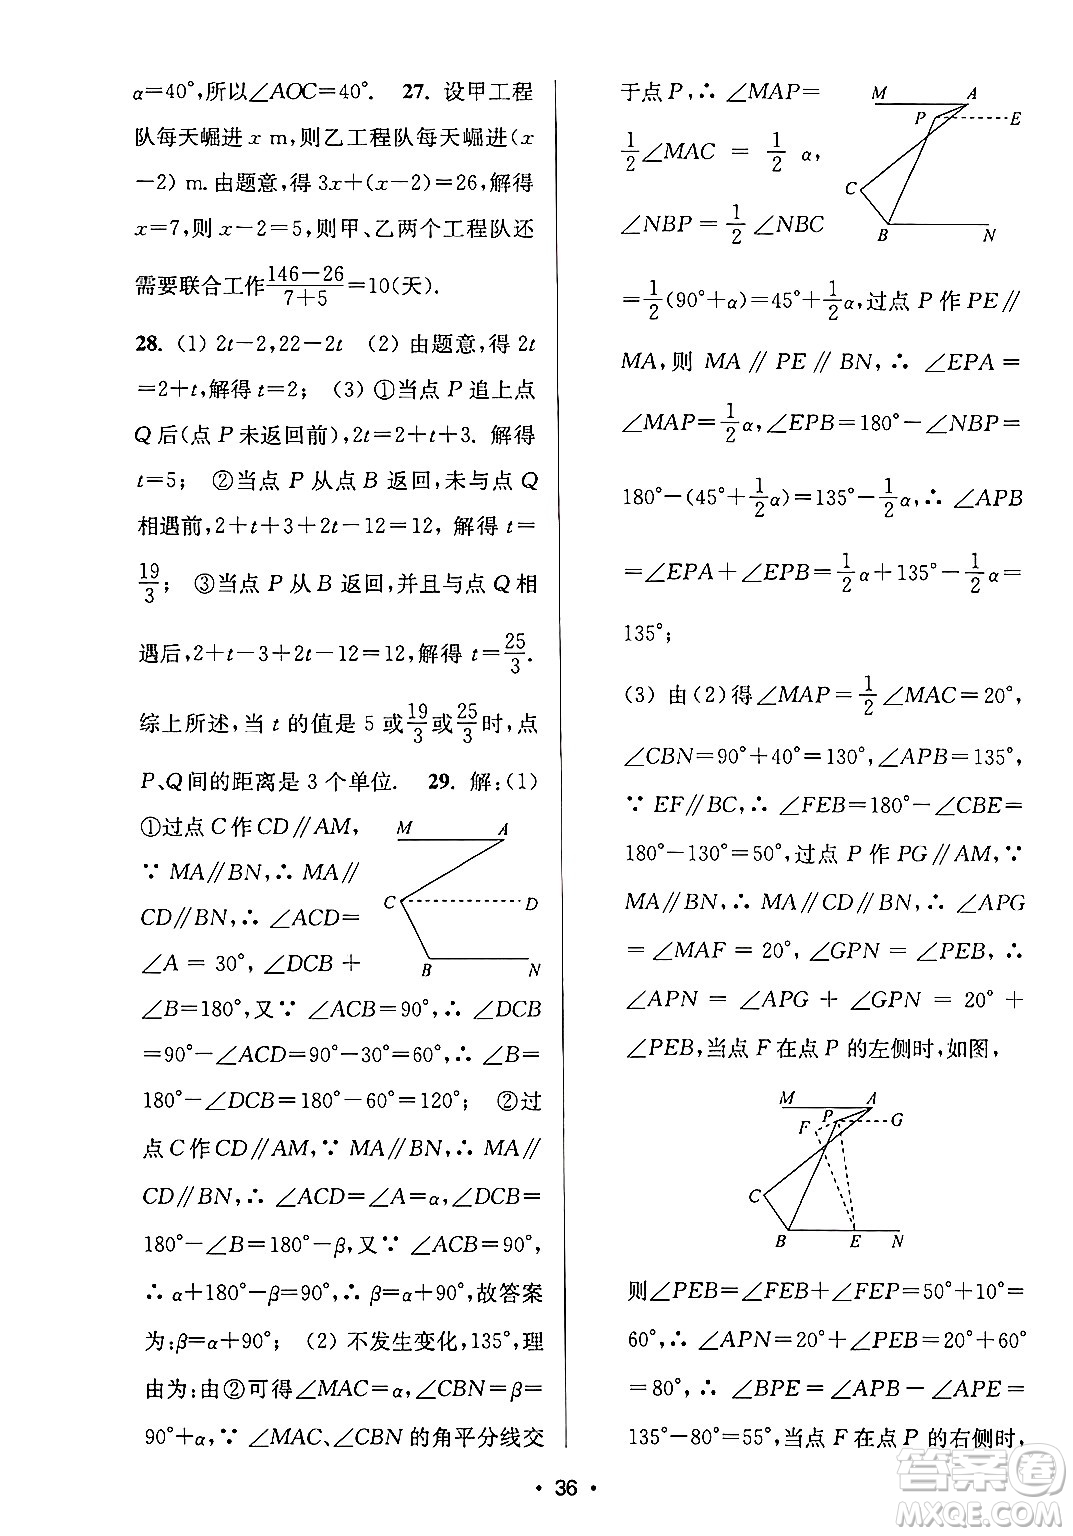 α=40°,所以∠AOC=40°. 27. 设甲工程
队每天崛进 x m,则乙工程队每天崛进(x
-2) m. 由题意,得 3x+(x-2)=26,解得
x=7,则 x-2=5,则甲、乙两个工程队还
需要联合工作\frac{146-26}{7+5}=10(天).
28. (1) 2t-2,22-2t (2) 由题意,得 2t
=2+t,解得 t=2; (3) ①当点 P 追上点
Q 后(点 P 未返回前),2t=2+t+3. 解得
t=5; ②当点 P 从点 B 返回,未与点 Q
相遇前,2+t+3+2t-12=12, 解得 t=
\frac{19}{3}; ③当点 P 从 B 返回,并且与点 Q 相
遇后,2+t-3+2t-12=12,解得 t=\frac{25}{3}.
综上所述,当 t 的值是 5 或\frac{19}{3}或\frac{25}{3}时,点
P、Q间的距离是 3 个单位. 29. 解:(1)
①过点 C 作 CD∥AM,
∵ MA∥BN,∴ MA∥
CD∥BN,∴ ∠ACD=
∠A = 30°, ∠DCB +
M A
C D
B N
∠B=180°,又∵ ∠ACB=90°,∴ ∠DCB
=90°-∠ACD=90°-30°=60°,∴ ∠B=
180°-∠DCB=180°-60°=120°; ②过
点 C 作 CD∥AM,∵ MA∥BN,∴ MA∥
CD∥BN,∴ ∠ACD=∠A=α,∠DCB=
180°-∠B=180°-β,又∵ ∠ACB=90°,
∴ α+180°-β=90°,∴ β=α+90°,故答案
为:β=α+90°; (2) 不发生变化,135°,理
由为:由②可得∠MAC=α,∠CBN=β=
90°+α,∵ ∠MAC、∠CBN 的角平分线交
于点 P,∴ ∠MAP=
\frac{1}{2}∠MAC = \frac{1}{2} α,
∠NBP = \frac{1}{2} ∠NBC
M A
P E
C
B N
=\frac{1}{2}(90°+α)=45°+\frac{1}{2}α,过点 P 作 PE∥
MA,则 MA∥PE∥BN,∴ ∠EPA=
∠MAP=\frac{1}{2}α,∠EPB=180°-∠NBP=
180°-(45°+\frac{1}{2}α)=135°-\frac{1}{2}α,∴ ∠APB
=∠EPA+∠EPB=\frac{1}{2}α+135°-\frac{1}{2}α=
135°;
(3) 由(2)得∠MAP=\frac{1}{2}∠MAC=20°,
∠CBN=90°+40°=130°,∠APB=135°,
∵ EF∥BC,∴ ∠FEB=180°-∠CBE=
180°-130°=50°,过点 P 作 PG∥AM,∵
MA∥BN,∴ MA∥CD∥BN,∴ ∠APG
=∠MAF = 20°, ∠GPN = ∠PEB, ∴
∠APN = ∠APG + ∠GPN = 20° +
∠PEB,当点 F 在点 P 的左侧时,如图,
M A
F P G
C
B E N
则∠PEB=∠FEB+∠FEP=50°+10°=
60°,∴ ∠APN=20°+∠PEB=20°+60°
=80°,∴ ∠BPE=∠APB-∠APE=
135°-80°=55°,当点 F 在点 P 的右侧时,
· 36 ·
答案卷
MXQE.COM